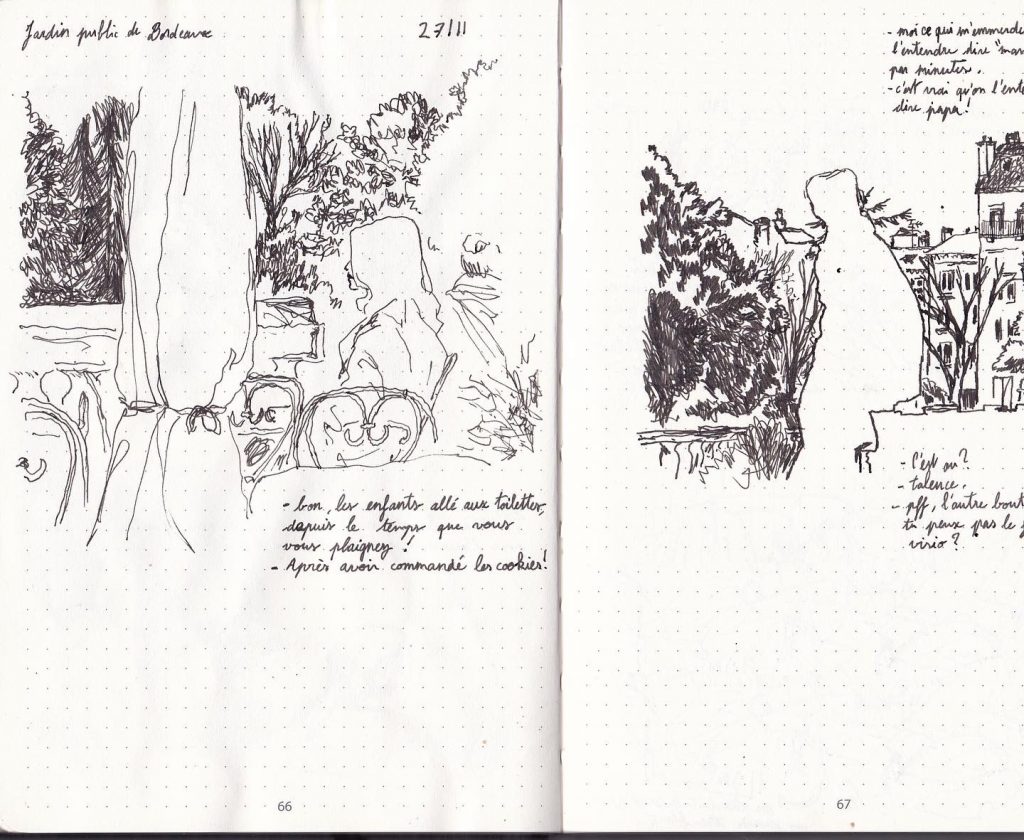 Jardin public de Bordeaux
27/11
- bon, les enfants allé aux toilettes,
depuis le temps que vous
vous plaignez !
- Après avoir commandé les cookies!
66
- moi ce qui m'emmerde
l'entendre dire "mam
par minutes.
- c'est vrai qu'on l'ente
dire papa!
- C'est où?
- talence.
- pff, l'autre bout
tu peux pas le
visio?
67